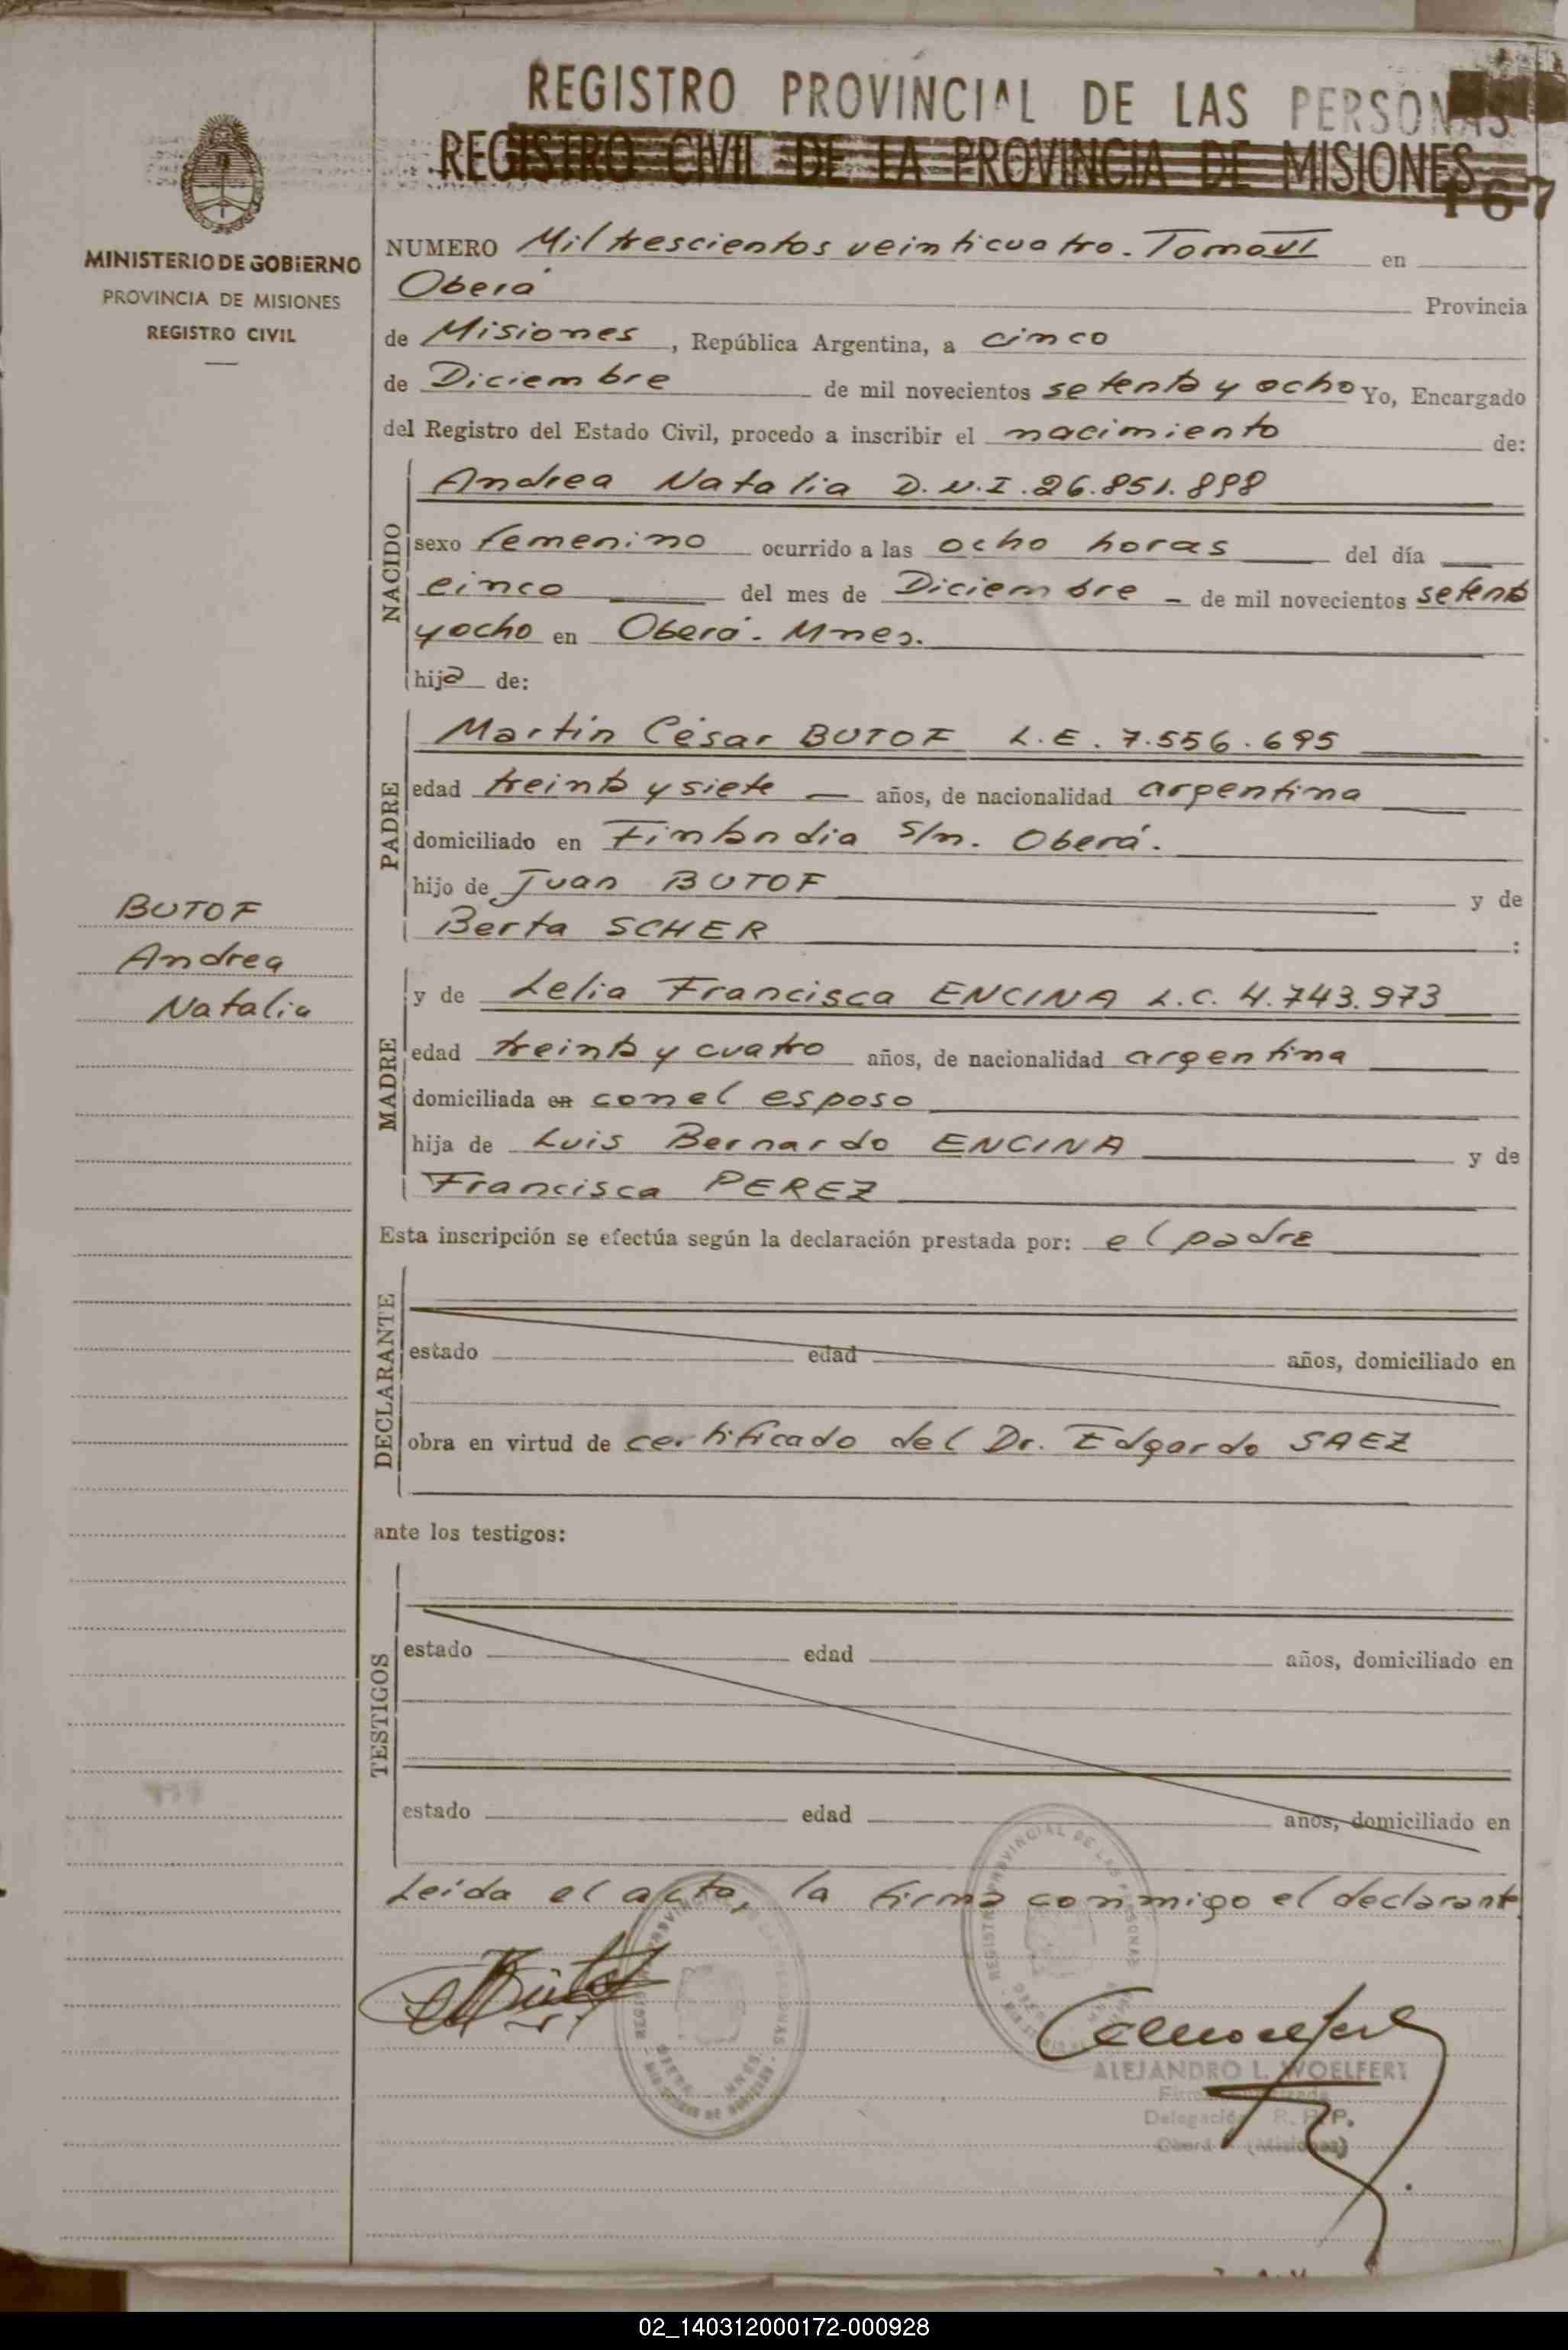 REGISTRO PROVINCIAL DE LAS PERSONAS
REGISTRO CIVIL DE LA PROVINCIA DE MISIONES
167
MINISTERIO DE GOBIERNO
PROVINCIA DE MISIONES
REGISTRO CIVIL
NUMERO Mil trescientos veinticuatro. Tomo VI en
Oberá Provincia
de Misiones, República Argentina, a cinco
de Diciembre de mil novecientos setenta y ocho Yo, Encargado
del Registro del Estado Civil, procedo a inscribir el nacimiento de:
NACIDO
Andrea Natalia D.N.I. 26.851.898
sexo femenino ocurrido a las ocho horas del día
cinco del mes de Diciembre - de mil novecientos setenta
y ocho en Oberá. Mnes.
hija de:
PADRE
Martin César BUTOF L.E. 7.556.695
edad treinta y siete — años, de nacionalidad argentina
domiciliado en Finlandia s/n. Oberá.
hijo de Juan BUTOF y de
Berta SCHER :
BUTOF
Andrea
Natalia
MADRE
y de Lelia Francisca ENCINA L.C. 4.743.973
edad treinta y cuatro años, de nacionalidad argentina
domiciliada en con el esposo
hija de Luis Bernardo ENCINA y de
Francisca PEREZ
Esta inscripción se efectúa según la declaración prestada por: el padre
DECLARANTE
estado edad años, domiciliado en
obra en virtud de certificado del Dr. Edgardo SAEZ
ante los testigos:
TESTIGOS
estado edad años, domiciliado en
estado edad años, domiciliado en
Leída el acta, la firma conmigo el declarante
REGISTRO PROVINCIAL DE LAS PERSONAS
ALEJANDRO L. WOELFERT
Delegación R. P. P.
Oberá (Misiones)
02_140312000172-000928